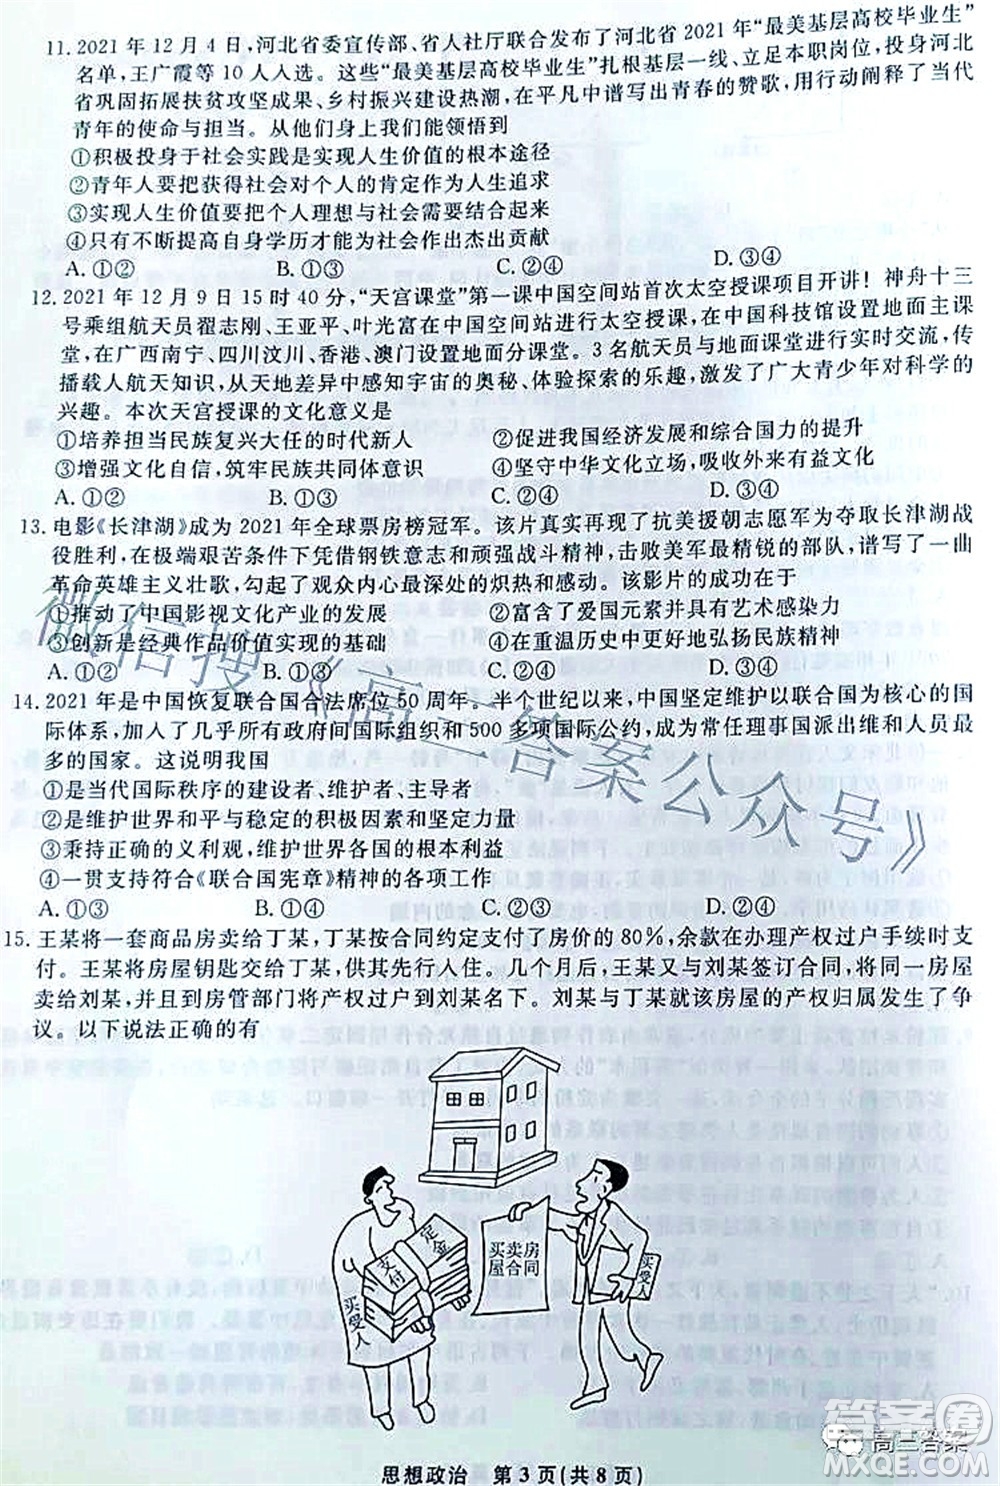 11. 2021 年 12 月 4 日,河北省委宣传部、省人社厅联合发布了河北省 2021 年“最美基层高校毕业生”
名单,王广霞等 10 人入选。这些“最美基层高校毕业生”扎根基层一线、立足本职岗位,投身河北
省巩固拓展扶贫攻坚成果、乡村振兴建设热潮,在平凡中谱写出青春的赞歌,用行动阐释了当代
青年的使命与担当。从他们身上我们能领悟到
①积极投身于社会实践是实现人生价值的根本途径
②青年人要把获得社会对个人的肯定作为人生追求
③实现人生价值要把个人理想与社会需要相统一
④只有不断提高自身学历才能为社会作出杰出贡献
A.①② B.①③ C.②④ D.③④
12. 2021 年 12 月 9 日 15 时 40 分,“天宫课堂”第一课中国空间站首次太空授课项目开讲! 神舟十三
号乘组航天员翟志刚、王亚平、叶光富在中国空间站进行太空授课,在中国科技馆设置地面主课
堂,在广西南宁、四川汶川、香港、澳门设置地面分课堂。3 名航天员与地面课堂进行实时交流,传
播载人航天知识,从天地差异中感知宇宙的奥秘、体验探索的乐趣,激发了广大青少年对科学的
兴趣。本次天宫授课的文化意义是
①培养担当民族复兴大任的时代新人 ②促进我国经济发展和综合国力的提升
③增强文化自信,筑牢民族共同体意识 ④坚守中华文化立场,吸收外来有益文化
A.①② B.①③ C.②④ D.③④
13. 电影《长津湖》成为 2021 年全球票房榜冠军。该片真实再现了抗美援朝志愿军为夺取长津湖战
役胜利,在极端艰苦条件下凭借钢铁意志和顽强战斗精神,击败美军最精锐的部队,谱写了一曲
革命英雄主义壮歌,勾起了观众内心最深处的炽热和感动。该影片的成功在于
①推动了中国影视文化产业的发展 ②富含了爱国元素并具有艺术感染力
③创新是经典作品价值实现的基础 ④在重温历史中更好地弘扬民族精神
A.①② B.①③ C.②④ D.③④
14. 2021 年是中国恢复联合国合法席位 50 周年。半个世纪以来,中国坚定维护以联合国为核心的国
际体系,加入了几乎所有政府间国际组织和 500 多项国际公约,成为常任理事国派出维和人员最
多的国家。这说明我国
①是当代国际秩序的建设者、维护者、主导者
②是维护世界和平与稳定的积极因素和坚定力量
③秉持正确的义利观,维护世界各国的根本利益
④一贯支持符合《联合国宪章》精神的各项工作
A.①③ B.①④ C.②③ D.②④
15. 王某将一套商品房卖给丁某,丁某按合同约定支付了房价的 80%,余款在办理产权过户手续时支
付。王某将房屋钥匙交给丁某,供其先行入住。几个月后,王某又与刘某签订合同,将同一房屋
卖给刘某,并且到房管部门将产权过户到刘某名下。刘某与丁某就该房屋的产权归属发生了争
议。以下说法正确的有
支付
定金
买卖房
屋合同
买受人
买受人
微信搜《高三答案公众号》
答案圈
高三答案
思想政治 第 3 页(共 8 页)